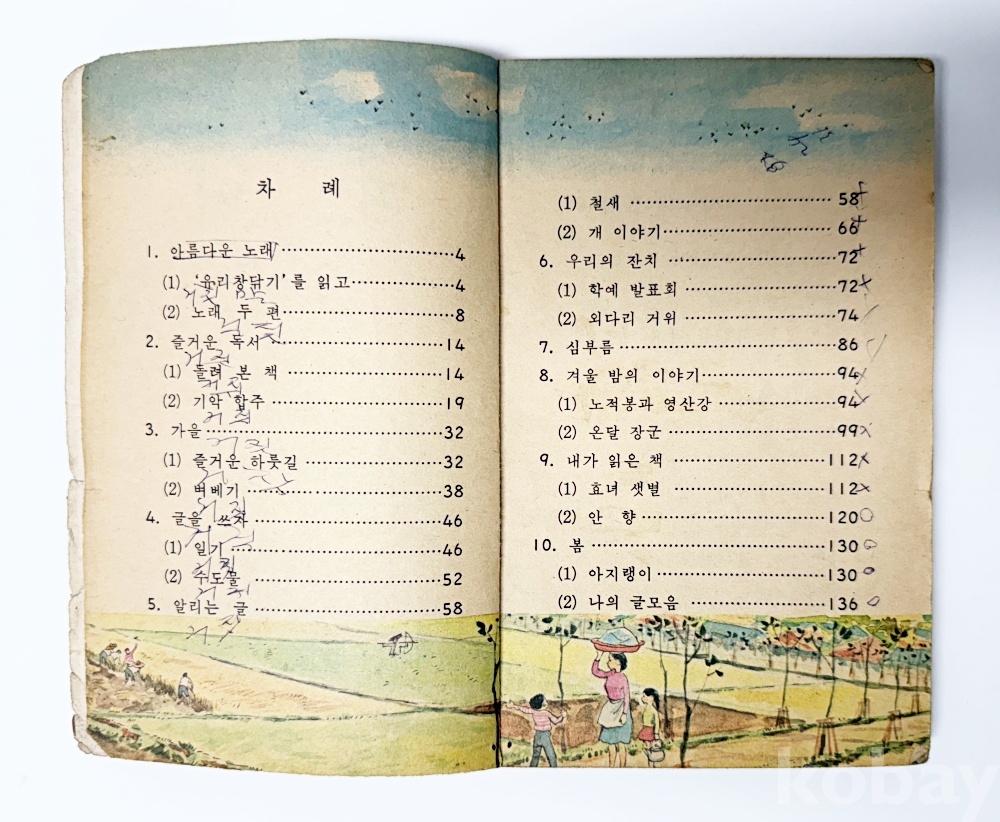 차 례
1. 아름다운 노래 4
(1) ‘유리창닦기’를 읽고 4
(2) 노래 두 편 8
2. 즐거운 독서 14
(1) 돌려 본 책 14
(2) 기악 합주 19
3. 가을 32
(1) 즐거운 하룻길 32
(2) 벼베기 38
4. 글을 쓰자 46
(1) 일기 46
(2) 수도물 52
5. 알리는 글 58
(1) 철새 58
(2) 개 이야기 66
6. 우리의 잔치 72
(1) 학예 발표회 72
(2) 외다리 거위 74
7. 심부름 86
8. 겨울 밤의 이야기 94
(1) 노적봉과 영산강 94
(2) 온달 장군 99
9. 내가 읽은 책 112
(1) 효녀 샛별 112
(2) 안 향 120
10. 봄 130
(1) 아지랭이 130
(2) 나의 글모음 136
kobay